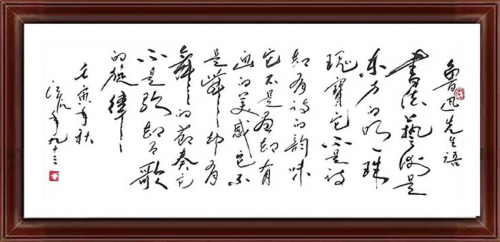 鲁迅先生语
书法艺术是
东方的明珠
瑰宝它不是诗
却有诗的韵味
它不是画却有
画的美感它不
是舞却有
舞的节奏它
不是歌却有歌
的旋律
壬寅年秋
年九三